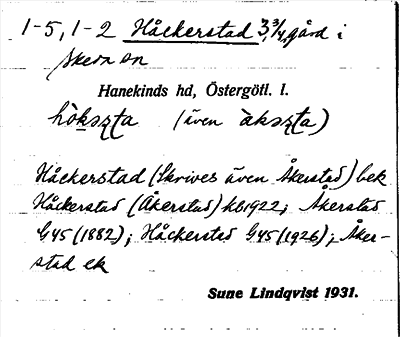 1-5, 1-2 Håckerstad 3, 3/4, gård i
Skeda sn
Hanekinds hd, Östergötl. l.
hò̀kszta (även àkszta)
Håckerstad (Skrives även Åkerstad) bek
Håckerstad (Åkerstad) kb1922; Åkerstad
G45 (1882); Håckerstad G45 (1926); Åker-
stad ek
Sune Lindqvist 1931.